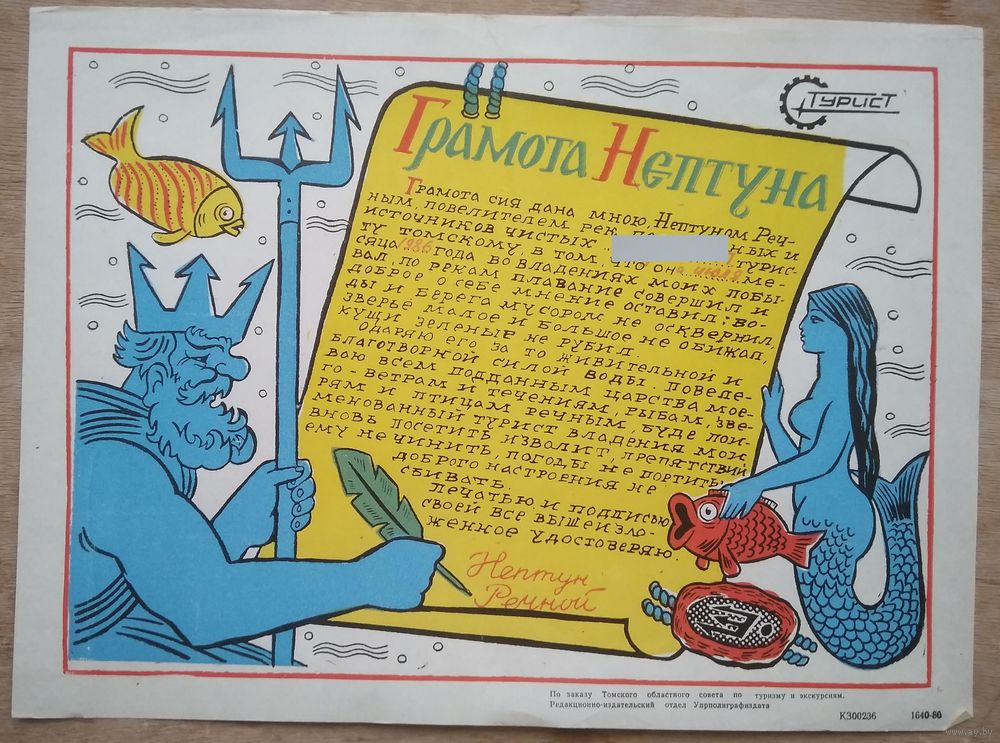 ТУРИСТ
Грамота Нептуна
Грамота сия дана мною, Нептуном Реч-
ным, повелителем рек, ных и
источников чистых турис-
ту томскому, в том, что он июля ме-
сяца 1986 года во владениях моих побы-
вал, по рекам плавание совершил и
доброе о себе мнение оставил: во-
ды и берега мусором не осквернил,
зверье малое и большое не обижал,
кущи зеленые не рубил.
Одаряю его за то живительной и
благотворной силой воды. Повеле-
ваю всем подданным царства мое-
го - ветрам и течениям, рыбам, зве-
рям и птицам речным, буде пои-
менованный турист владения мои
вновь посетить изволит, препятствий
ему не чинить, погоды не портить,
доброго настроения не
сбивать.
Печатью и подписью
своей все вышеизло-
женное удостоверяю.
Нептун
Речной
По заказу Томского областного совета по туризму и экскурсиям.
Редакционно-издательский отдел Упрполиграфиздата
К300236 1640-86
www.ay.by